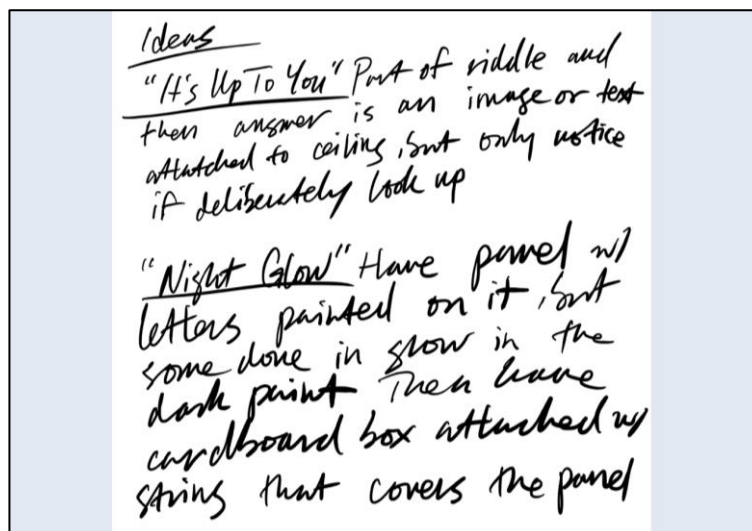 Ideas
"It's Up To You" Part of riddle and
then answer is an image or text
attatched to ceiling, but only notice
if deliberately look up
"Night Glow" Have panel w/
letters painted on it, but
some done in glow in the
dark paint Then have
cardboard box attached w/
string that covers the panel